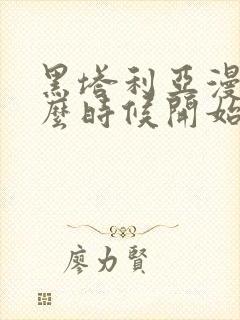 黑塔利亞漫
麼時候開始
廖力賢